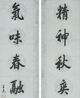 精神秋奕
氣味春融